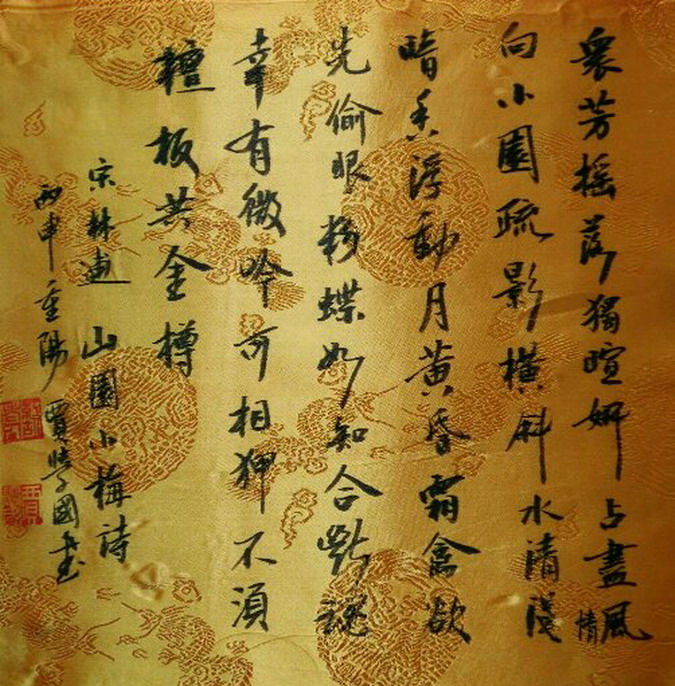 衆芳摇落獨暄妍占盡風情
向小園疏影橫斜水清淺
暗香浮動月黃昏霜禽欲
先偷眼粉蝶如知合斷魂
幸有微吟可相狎不須
檀板共金樽
宋林逋 山園小梅詩
丙申重陽 賈國書